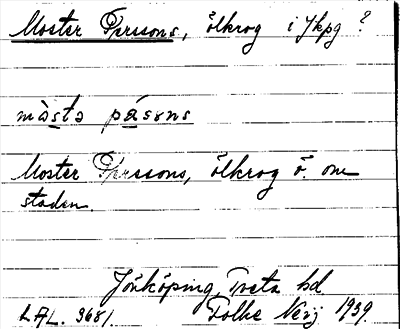 Moster Perssons, ölkrog i Jkpg ?
mosta pasons
Moster Perssons, ölkrog ö. om
staden.
Jönköping, Tveta hd
LAL. 3681. Folke Nerj 1939.